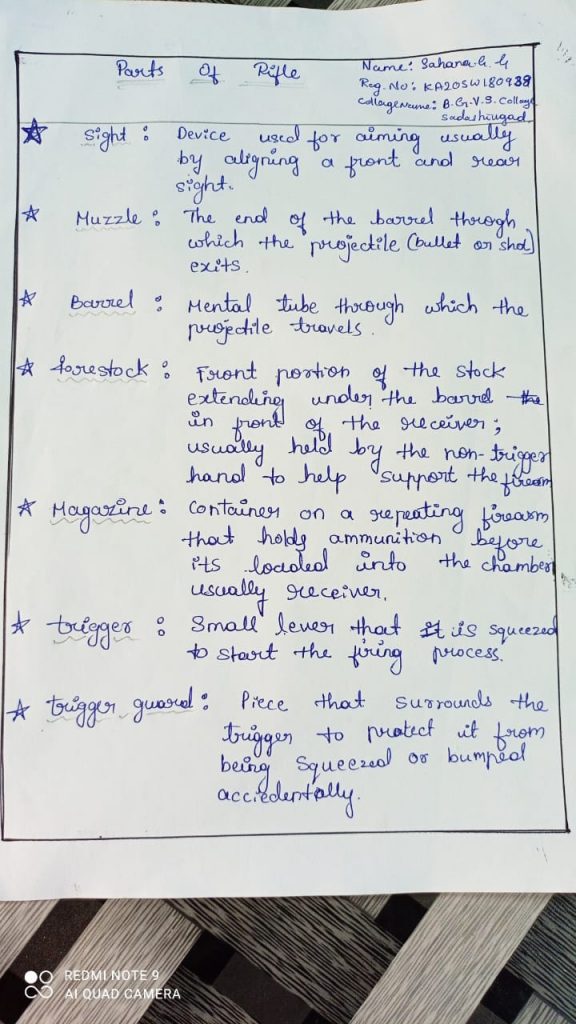 Parts Of Rifle
Name: Sahana.G.G
Reg. No: KA20SW180938
Collage Name: B.G.V.S. College
Sadashivgad
Sight : Device used for aiming usually
by aligning a front and rear
sight.
Muzzle : The end of the barrel throgh
which the projectile (bullet or shot)
exits.
Barrel : Mental tube through which the
projectile travels.
forestock : Front portion of the stock
extending under the barrel the
in front of the receiver;
usually held by the non-trigger
hand to help support the firearm
Magazine : Container on a repeating firearm
that holds ammunition before
its loaded into the chamber
usually receiver.
trigger : Small lever that it is squeezed
to start the firing process.
trigger guard : Piece that surrounds the
trigger to protect it from
being squeezed or bumped
acciedentally.
REDMI NOTE 9
AI QUAD CAMERA